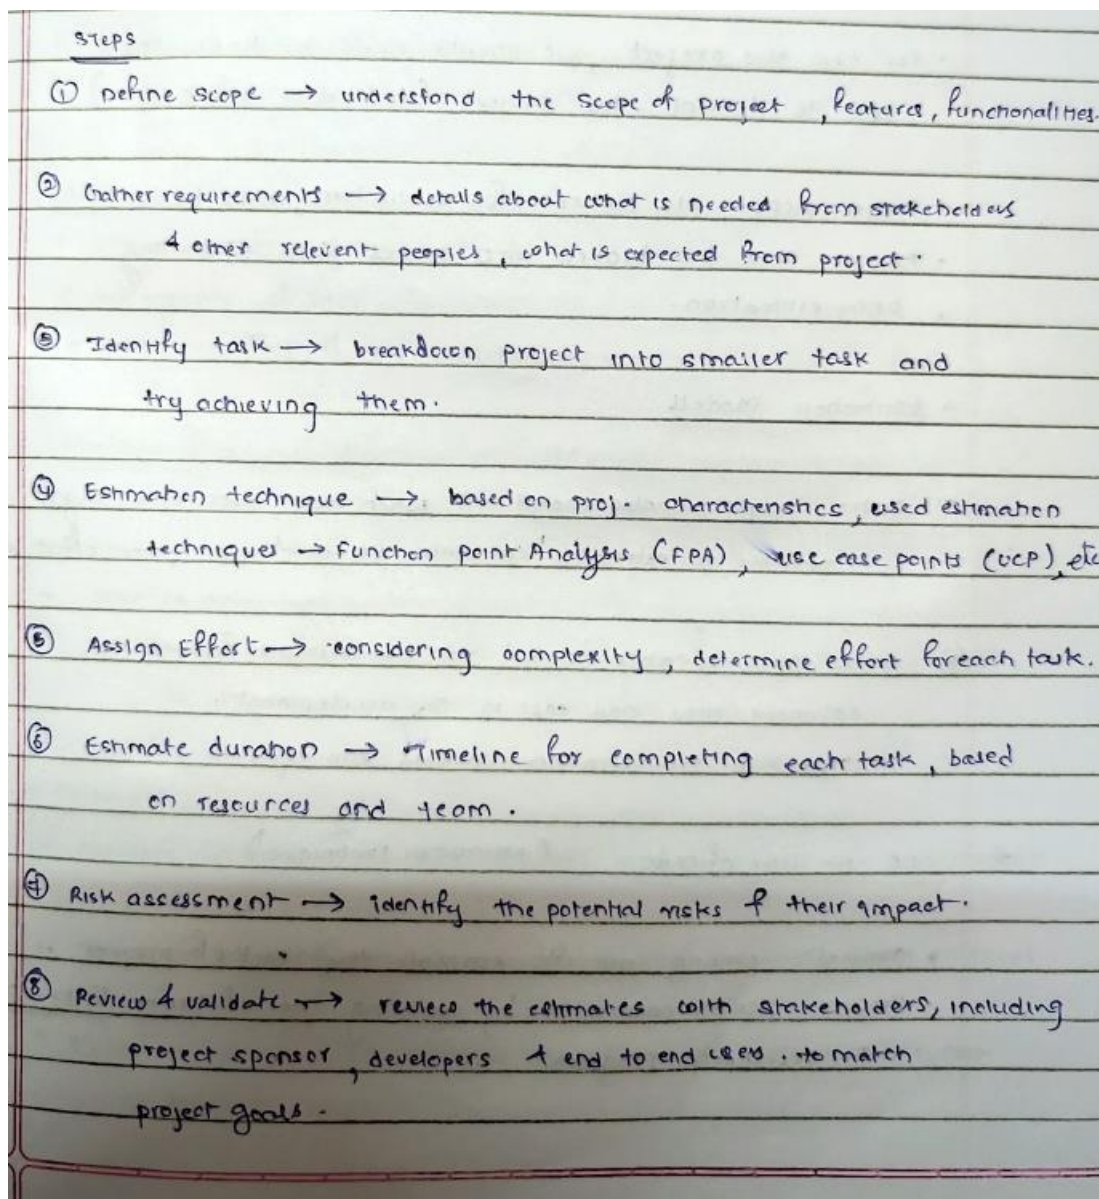 Steps
① Define scope → understand the scope of project, features, functionalities.
② Gather requirements → details about what is needed from stakeholders
& other relevent peoples, what is expected from project.
③ Identify task → breakdown project into smaller task and
try achieving them.
④ Estimation technique → based on proj. characteristics, used estimation
techniques → Function point Analysis (FPA), use case points (UCP), etc
⑤ Assign Effort → considering complexity, determine effort foreach task.
⑥ Estimate duration → Timeline for completing each task, based
on resources and team.
⑦ Risk assessment → identify the potential risks & their impact.
⑧ Review & validate → review the estimates with stakeholders, including
project sponsor, developers & end to end users. to match
project goals.